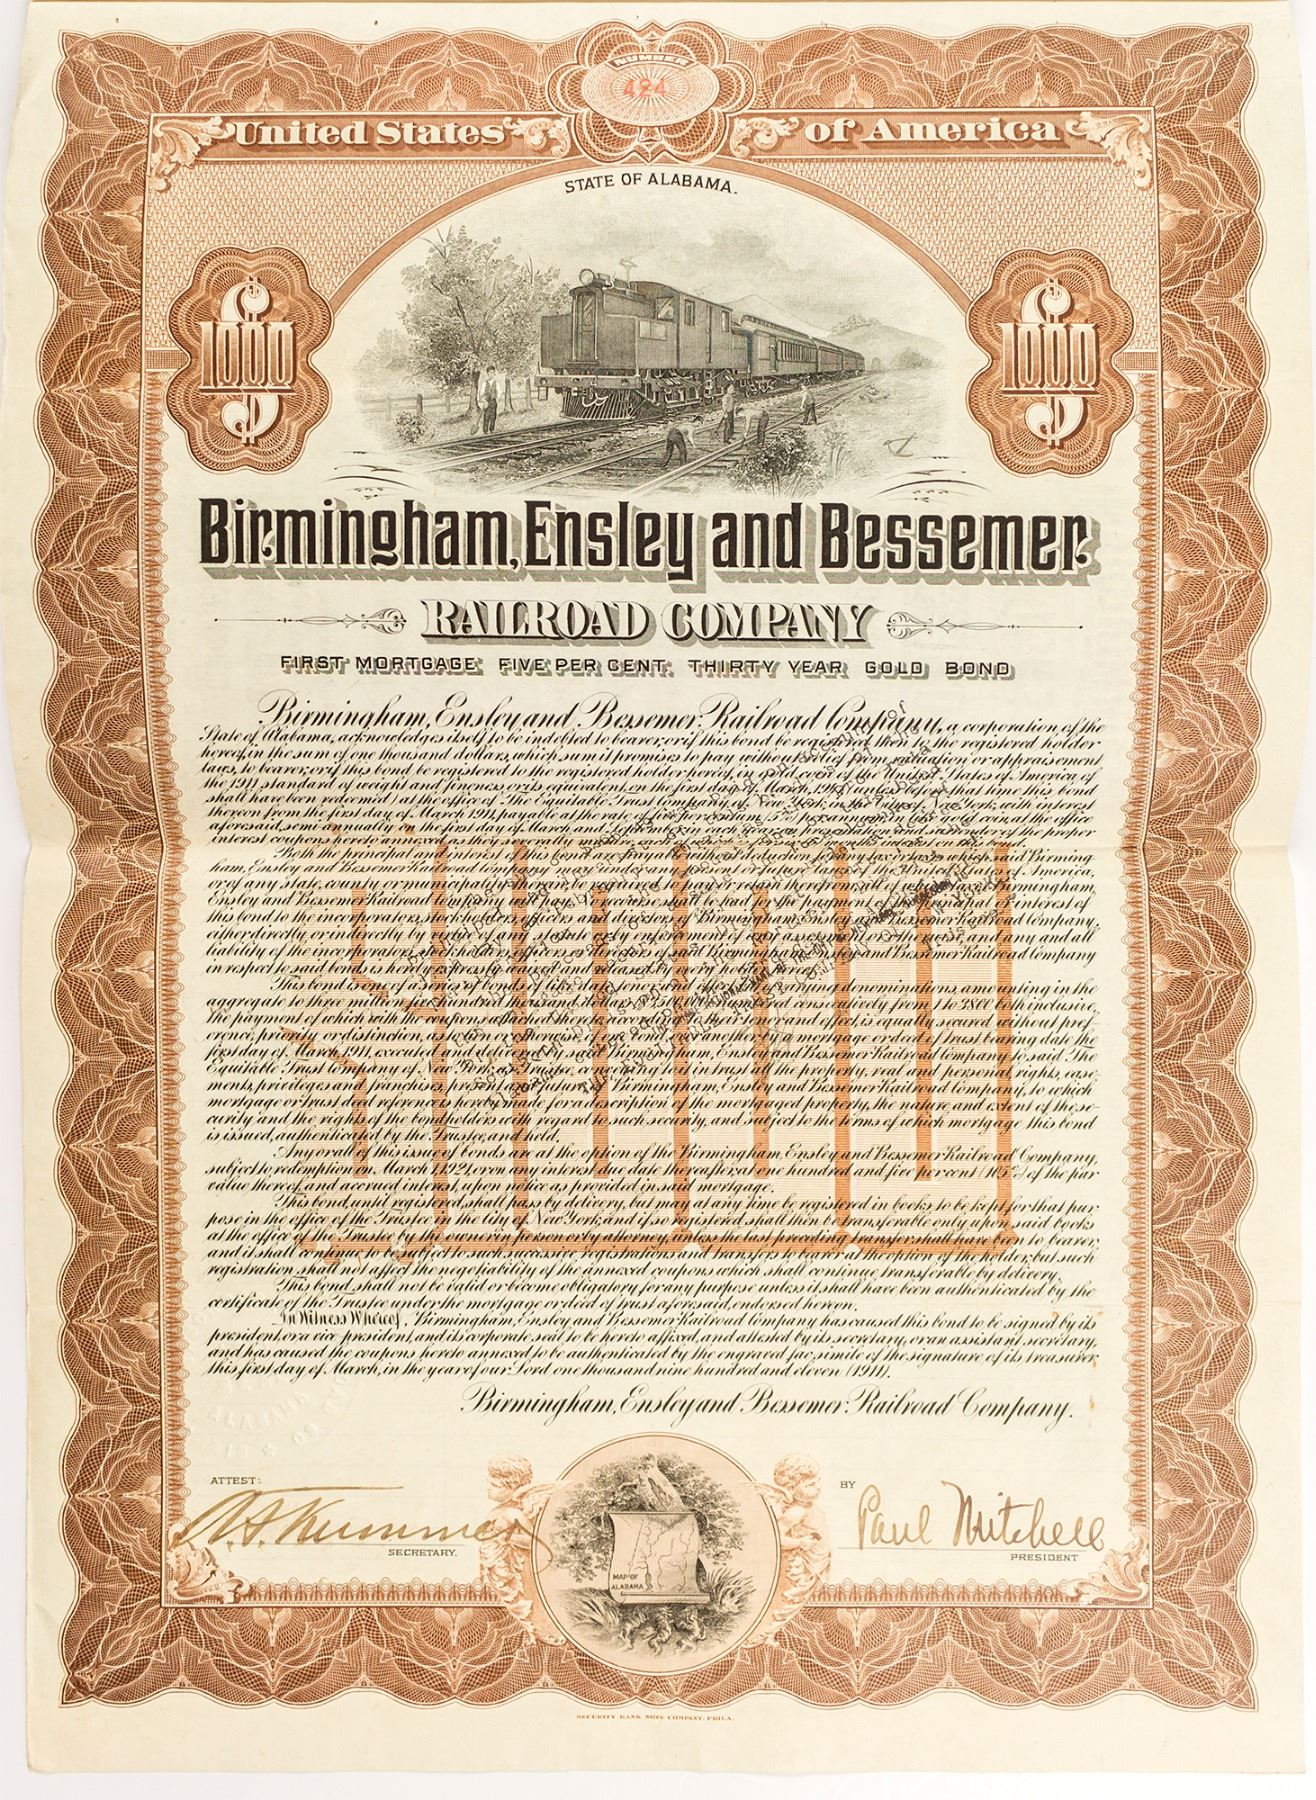 NUMBER
424
United States of America
STATE OF ALABAMA.
$1000 $1000
Birmingham, Ensley and Bessemer
RAILROAD COMPANY
FIRST MORTGAGE FIVE PER CENT. THIRTY YEAR GOLD BOND
Birmingham, Ensley and Bessemer Railroad Company, a corporation of the
State of Alabama, acknowledges itself to be indebted to bearer, or if this bond be registered then to the registered holder
hereof, in the sum of one thousand dollars, which sum it promises to pay without relief from valuation or appraisement
laws, to bearer, or if this bond be registered to the registered holder hereof, in gold coin of the United States of America of
the 1911 standard of weight and fineness, or its equivalent, on the first day of March, 1941, (unless before that time this bond
shall have been redeemed) at the office of The Equitable Trust Company of New York, in the City of New York, with interest
thereon from the first day of March 1911, payable at the rate of five per centum (5%) per annum, in like gold coin at the office
aforesaid, semi-annually on the first day of March and September in each year, on presentation and surrender of the proper
interest coupons hereto annexed as they severally mature, each
Both the principal and interest of this bond are payable without deduction for any tax or taxes which said Birming-
ham, Ensley and Bessemer Railroad Company may under any present or future laws of the United States of America,
or of any state, county or municipality therein, be required to pay or retain therefrom, all of which taxes Birmingham,
Ensley and Bessemer Railroad Company will pay. No recourse shall be had for the payment of the principal or interest of
this bond to the incorporators, stockholders, officers and directors of Birmingham, Ensley and Bessemer Railroad Company,
either directly or indirectly by virtue of any statute or by enforcement of any assessment or otherwise, and any and all
liability of the incorporators, stockholders, officers or directors of said Birmingham, Ensley and Bessemer Railroad Company
in respect to said bond is hereby expressly waived and released by every holder hereof.
This bond is one of a series of bonds of like date, tenor and effect, of varying denominations, amounting in the
aggregate to three million, five hundred thousand dollars, ($3,500,000) numbered consecutively from 1 to 3800 both inclusive,
the payment of which with the coupons attached thereto, according to their tenor and effect, is equally secured without pref-
erence, priority or distinction, as to lien or otherwise, of one bond over another by a mortgage or deed of trust bearing date the
first day of March 1911, executed and delivered by said Birmingham, Ensley and Bessemer Railroad Company to said The
Equitable Trust Company of New York, as Trustee, conveying to it in trust all the property, real and personal, rights, ease-
ments, privileges and franchises, present and future of Birmingham, Ensley and Bessemer Railroad Company, to which
mortgage or trust deed reference is hereby made for a description of the mortgaged property, the nature and extent of the se-
curity and the rights of the bondholders with regard to such security, and subject to the terms of which mortgage this bond
is issued, authenticated by the Trustee, and held.
Any or all of this issue of bonds are at the option of the Birmingham, Ensley and Bessemer Railroad Company,
subject to redemption on March 1, 1921, or on any interest due date thereafter, at one hundred and five per cent (105%) of the par
value thereof, and accrued interest, upon notice as provided in said mortgage.
This bond, until registered, shall pass by delivery, but may at any time be registered in books to be kept for that pur-
pose in the office of the Trustee in the City of New York, and if so registered shall then be transferable only upon said books
at the office of the Trustee by the owner in person or by attorney, unless the last preceding transfer shall have been to bearer,
and it shall continue to be subject to such successive registrations and transfers to bearer at the option of the holder, but such
registration shall not affect the negotiability of the annexed coupons which shall continue transferable by delivery.
This bond shall not be valid or become obligatory for any purpose unless it shall have been authenticated by the
certificate of the Trustee under the mortgage or deed of trust aforesaid, endorsed hereon.
In Witness Whereof, Birmingham, Ensley and Bessemer Railroad Company has caused this bond to be signed by its
president, or a vice president, and its corporate seal to be hereto affixed, and attested by its secretary, or an assistant secretary,
and has caused the coupons hereto annexed to be authenticated by the engraved fac-simile of the signature of its treasurer
this first day of March, in the year of our Lord one thousand nine hundred and eleven (1911).
Birmingham, Ensley and Bessemer Railroad Company.
ATTEST:
SECRETARY.
MAP OF
ALABAMA
BY
Paul Mitchell
PRESIDENT
SECURITY BANK NOTE COMPANY, PHILA.